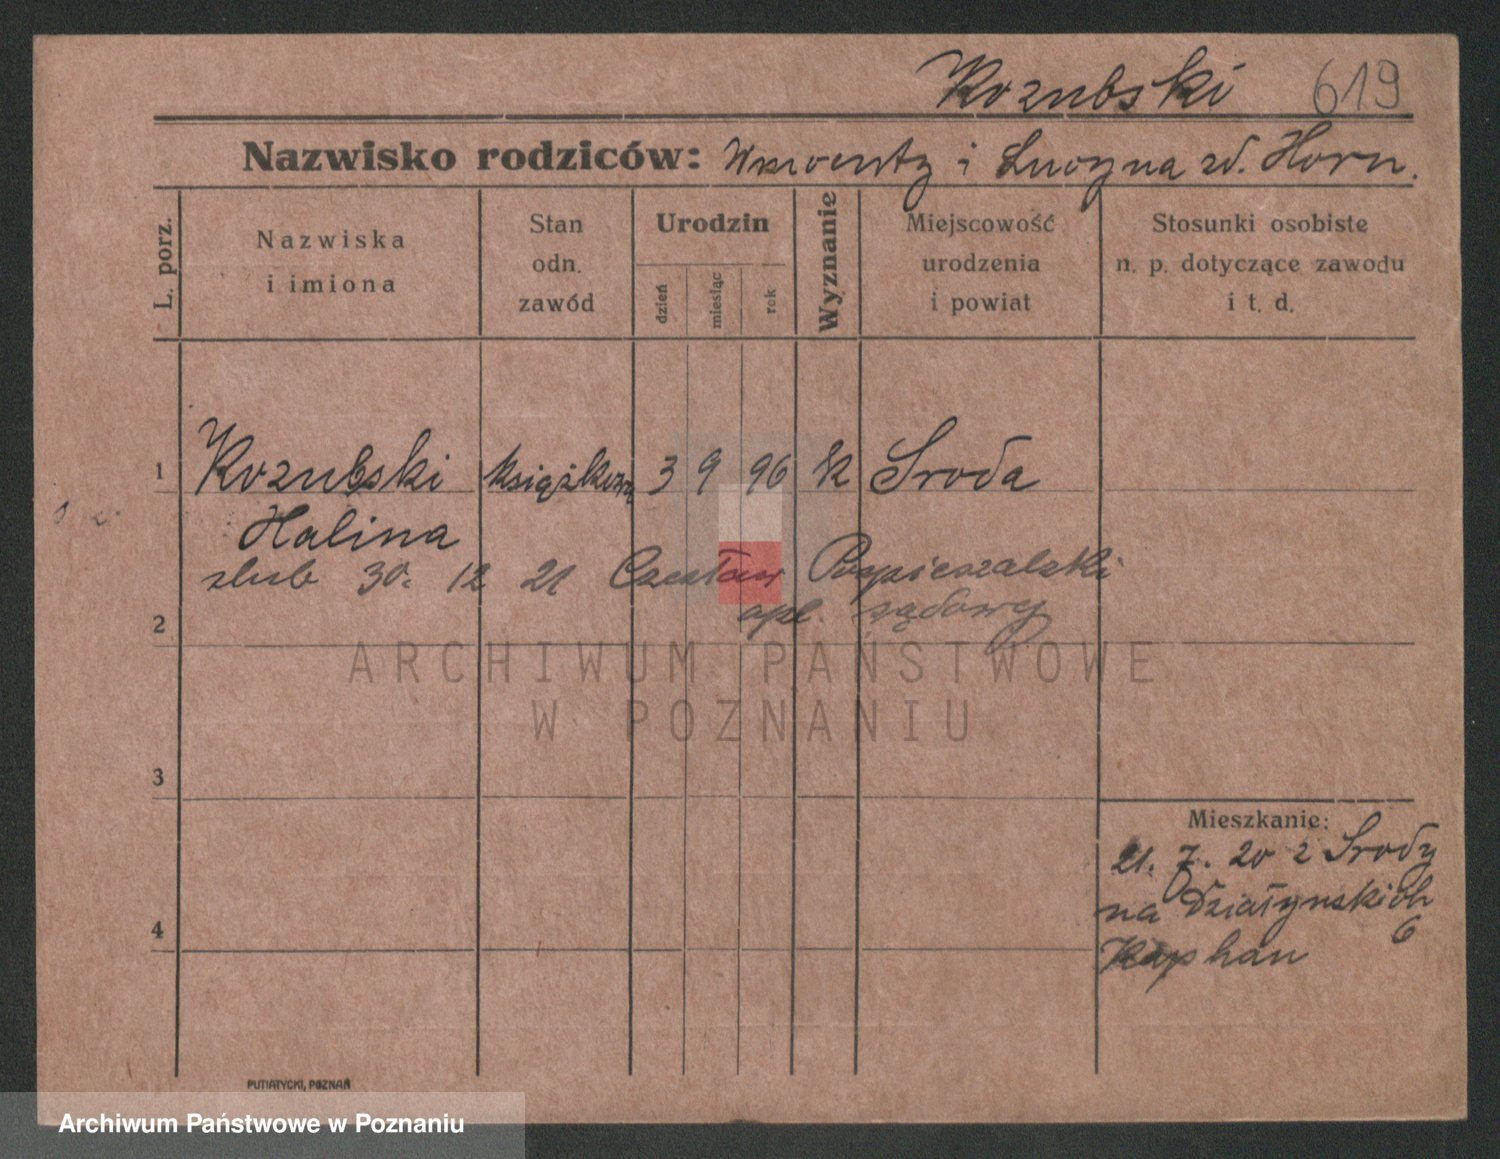 Kozubski 619
Nazwisko rodziców: Wincenty i Lucyna zd. Horn.
L. porz.
Nazwiska i imiona
Stan odn. zawód
Urodzin
dzień
miesiąc
rok
Wyznanie
Miejscowość urodzenia i powiat
Stosunki osobiste n. p. dotyczące zawodu i t. d.
1 Kozubski książkowa 3 9 96 k Środa
Halina
ślub 30. 12 21 Czesław Pospieszalski
apl. sądowy
2
ARCHIWUM PAŃSTWOWE
W POZNANIU
3
Mieszkanie:
21. 7. 20 z Środy
na Działyńskich
6
4
PUTIATYCKI, POZNAŃ
Archiwum Państwowe w Poznaniu